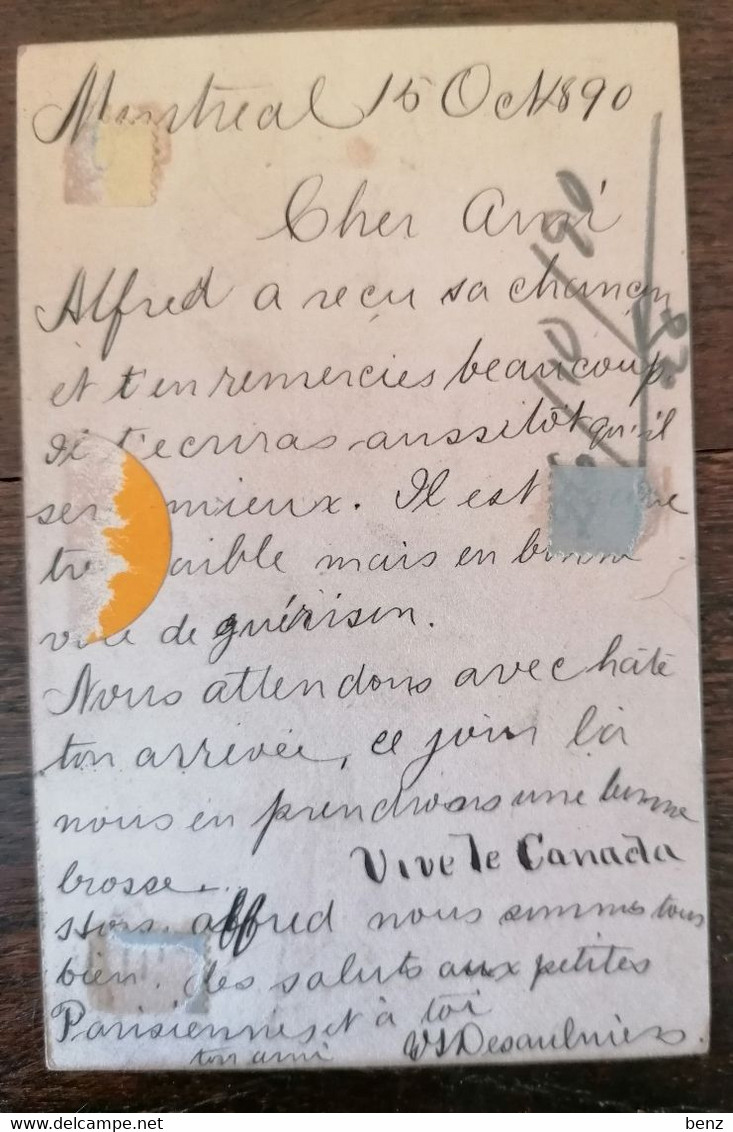 Montreal 15 Oct 1890
Cher Ami
Alfred a reçu sa chançon
et t'en remercies beaucoup.
Il t'ecriras aussitôt qu'il
ser mieux. Il est
tre aible mais en bonne
voie de guérison.
Nous attendons avec hâte
ton arrivée, ce jour là
nous en prendrons une bonne
brosse.
Vive le Canada
Hors alffred nous sommes tous
bien. des saluts aux petites
Parisiennes et à toi
ton ami WSDesaulniers.
10/90
benz